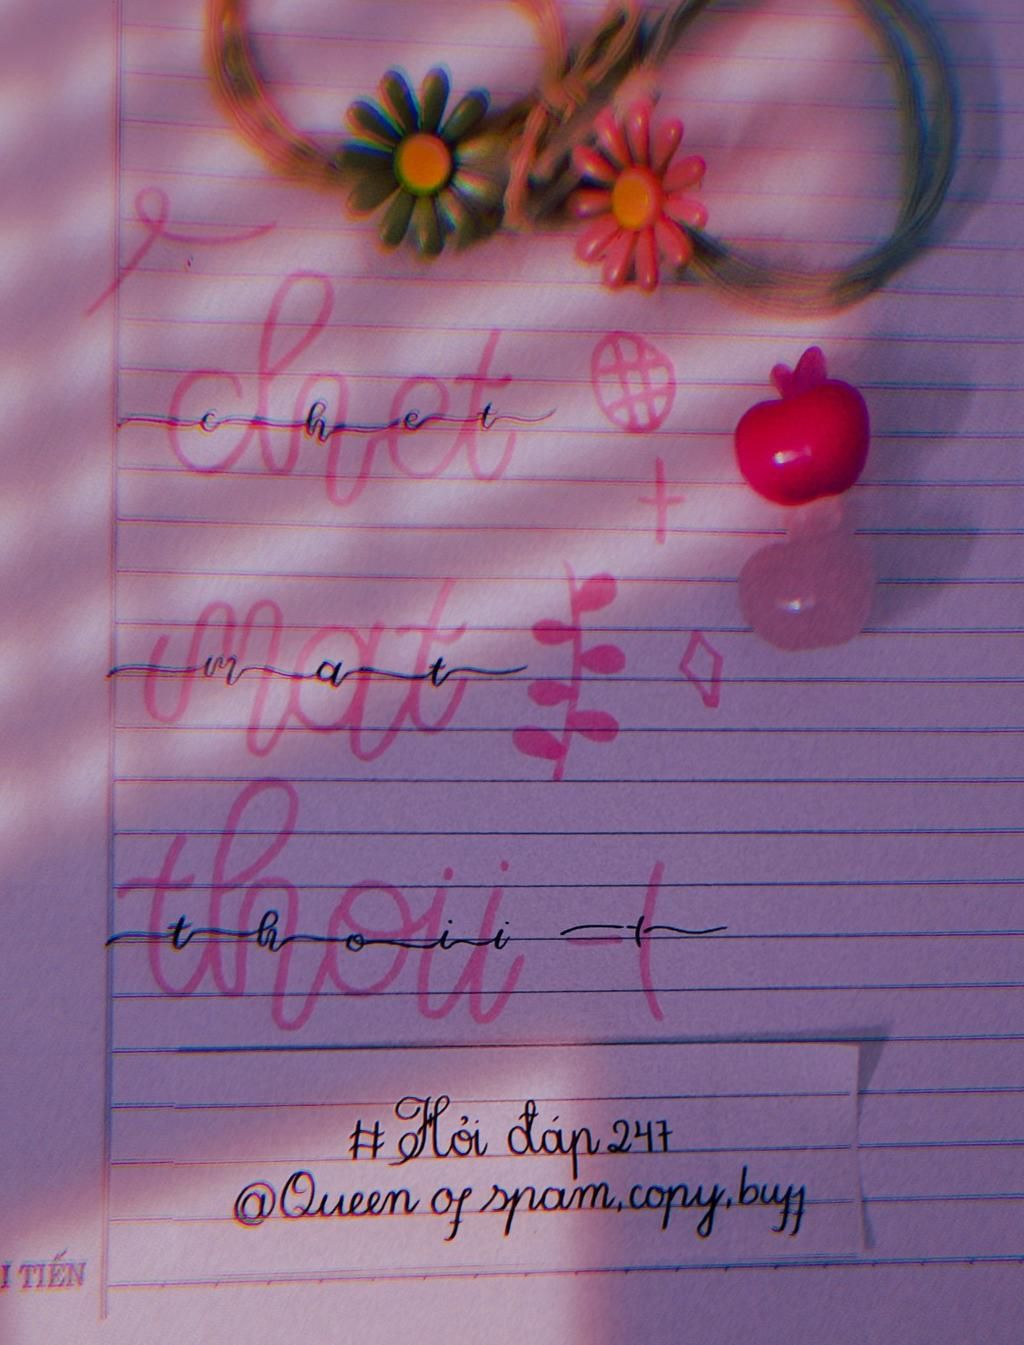 chet
mat
thoii
#Hỏi đáp 247
@Queen of spam, copy, buff
I TIẾN